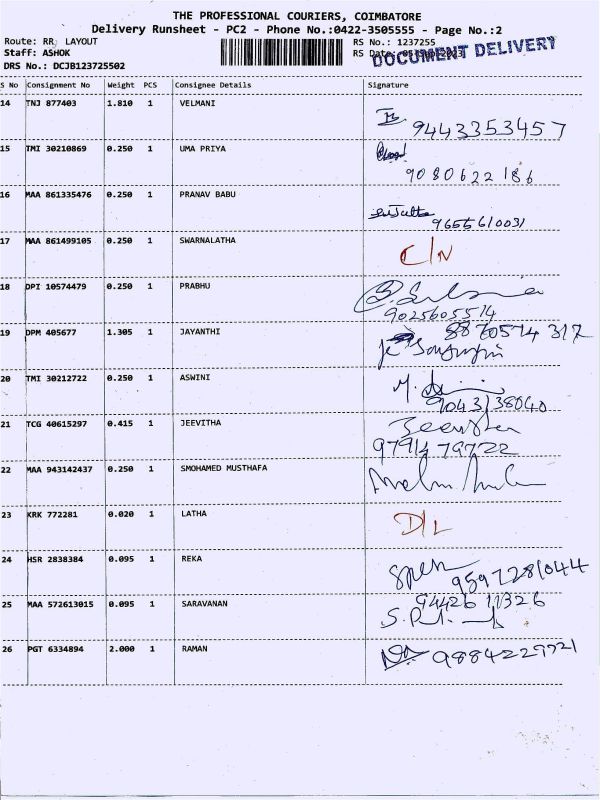 THE PROFESSIONAL COURIERS, COIMBATORE
Delivery Runsheet - PC2 - Phone No.:0422-3505555 - Page No.:2
Route: RR LAYOUT RS No.: 1237255
Staff: ASHOK RS Date: DOCUMENT DELIVERY
DRS No.: DCJB123725502
S No Consignment No Weight PCS Consignee Details Signature
14 TNJ 877403 1.810 1 VELMANI
9443353457
15 TMI 30210869 0.250 1 UMA PRIYA
9080622186
16 MAA 861335476 0.250 1 PRANAV BABU
9655610031
17 MAA 861499105 0.250 1 SWARNALATHA C/N
18 DPI 10574479 0.250 1 PRABHU
9025605514
19 DPM 405677 1.305 1 JAYANTHI 8870574317
20 TMI 30212722 0.250 1 ASWINI
9043138040
21 TCG 40615297 0.415 1 JEEVITHA Jeevitha
9791479722
22 MAA 943142437 0.250 1 SMOHAMED MUSTHAFA
23 KRK 772281 0.020 1 LATHA D/L
24 HSR 2838384 0.095 1 REKA
9597281044
25 MAA 572613015 0.095 1 SARAVANAN 9442611326
26 PGT 6334894 2.000 1 RAMAN 9884229721